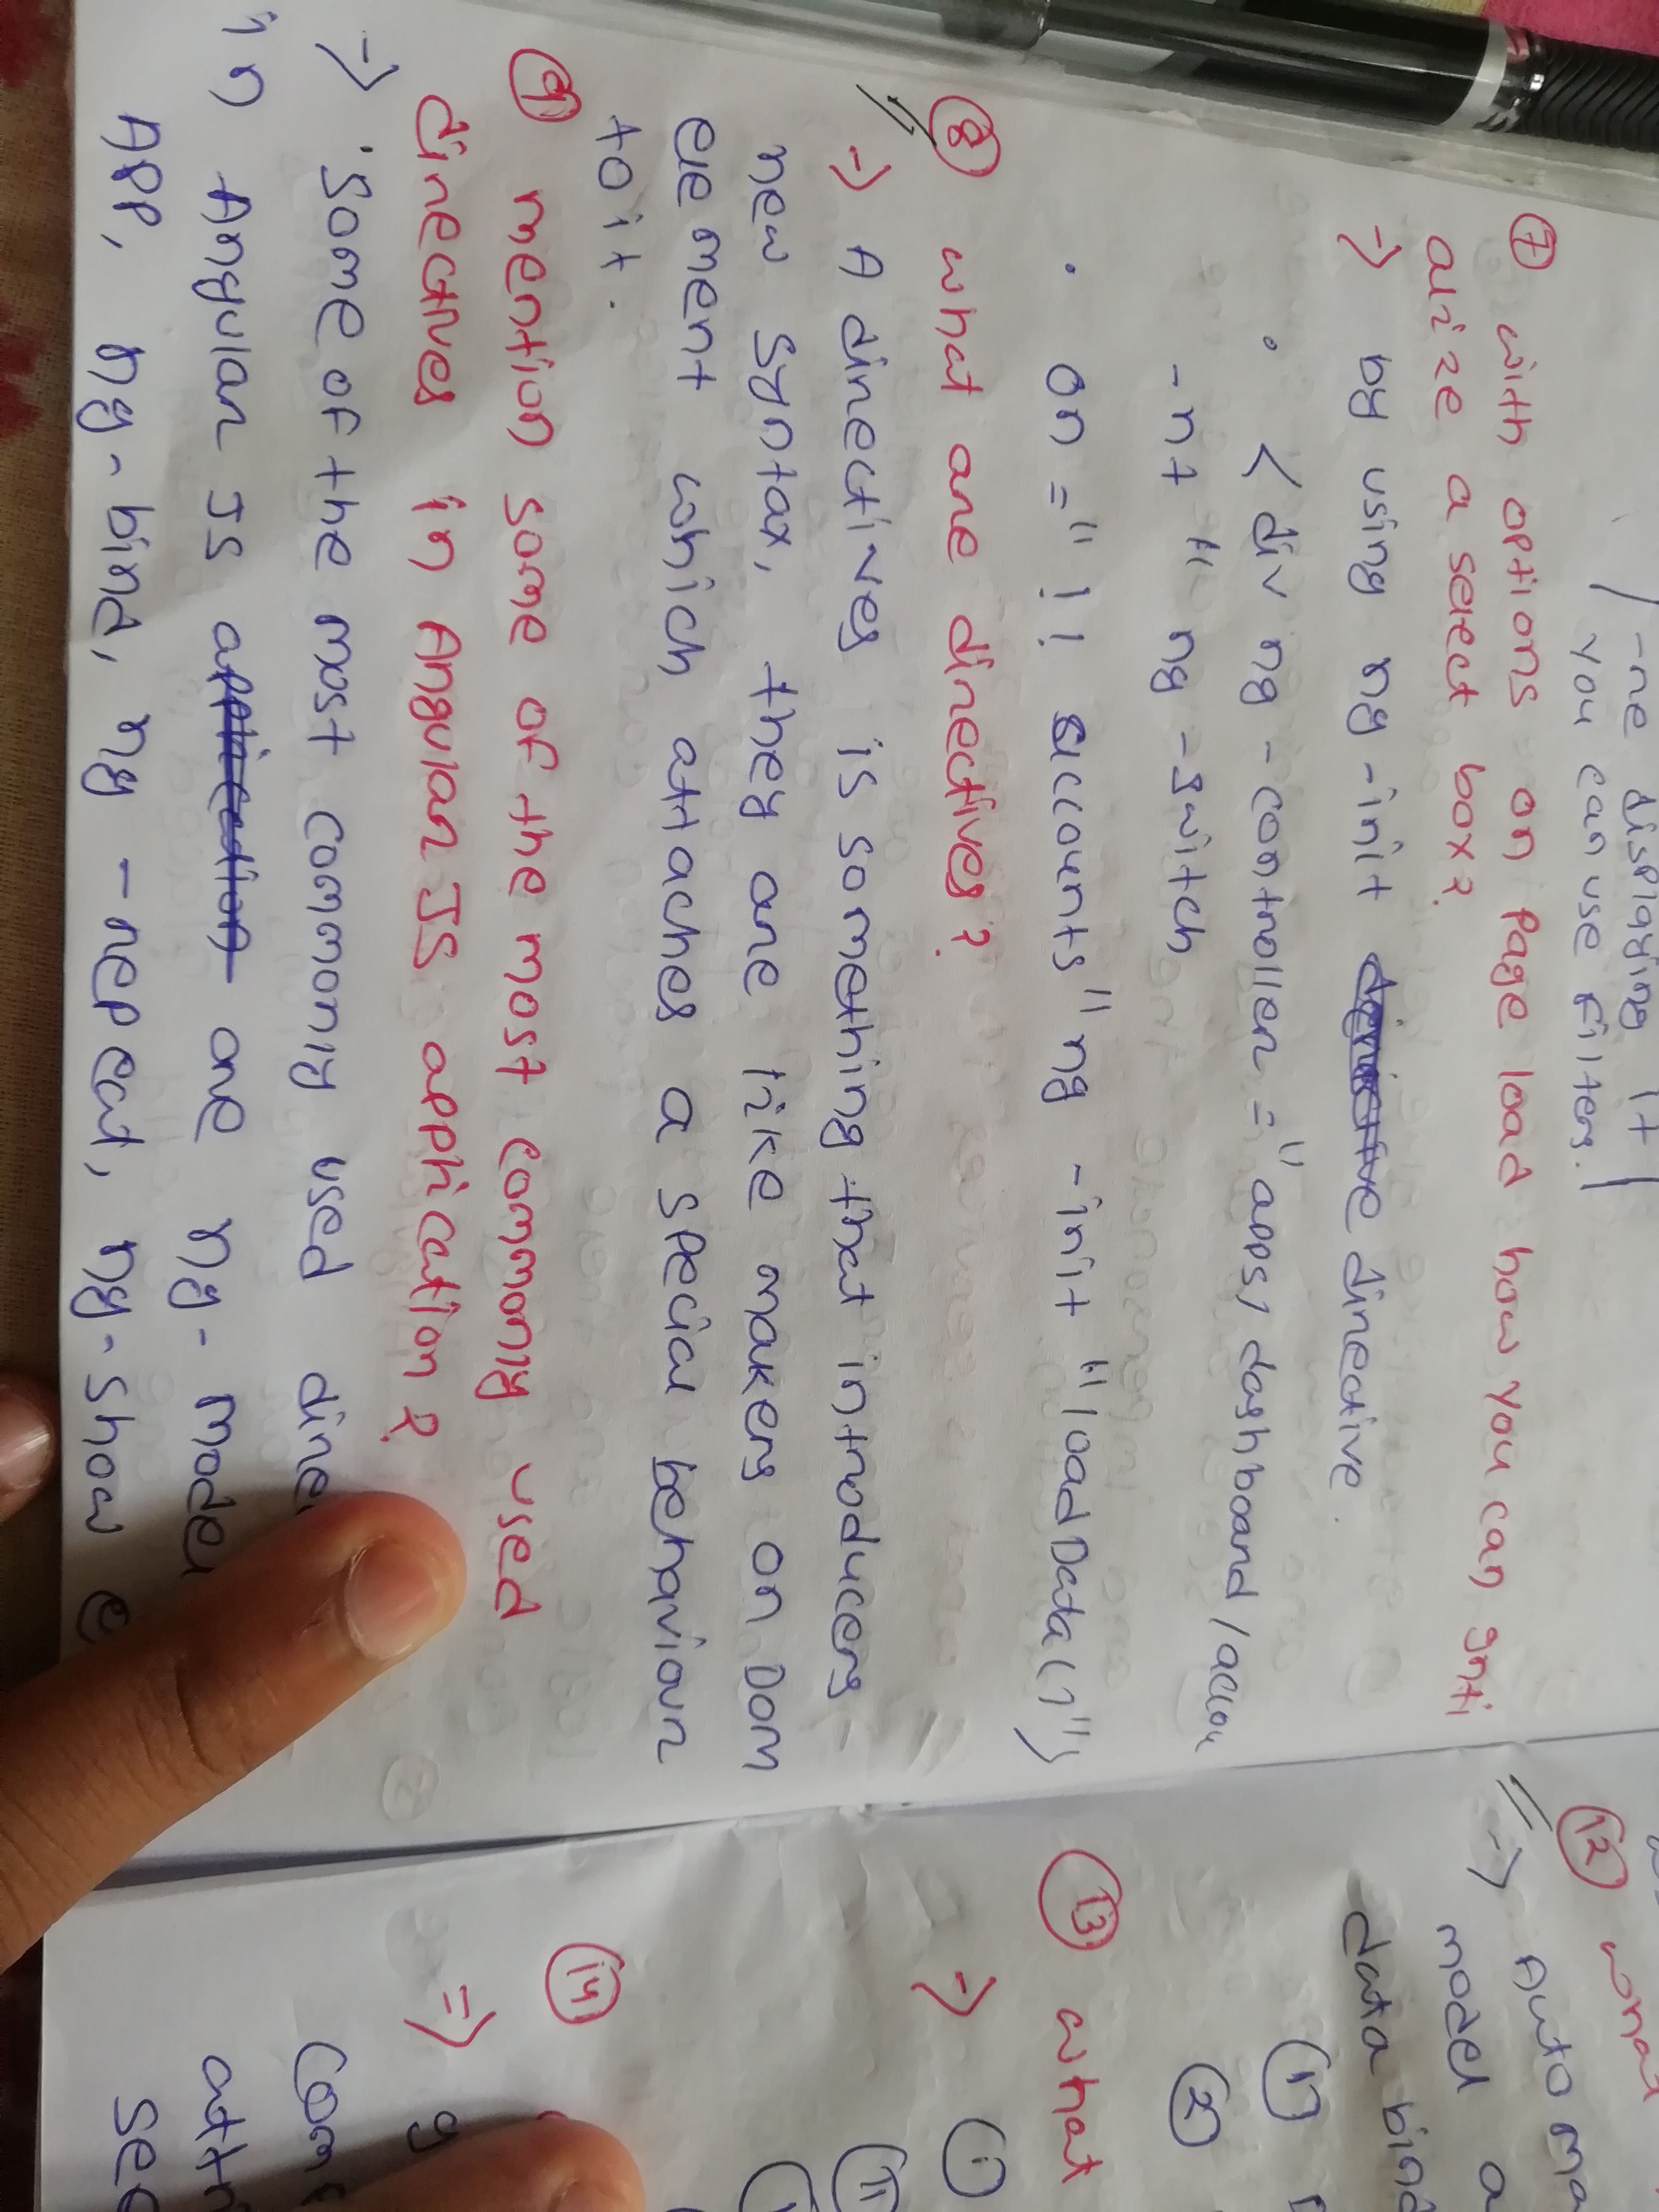 -ne displaying it
you can use filters.
⑦ with options on page load how you can Inti
alize a select box?
-> by using ng-init directive.
• < div ng - controller = "apps/ dashboard /accou
-nt " ng - switch
• on = "!! accounts" ng - init "loadData()")
⑧ what are directives?
-> A directives is something that introducers
new syntax, they are like makers on DOM
element which attaches a special behaviour
to it.
⑨ mention some of the most commonly used
directives in Angular JS application?
-> 'some of the most commonly used dire
in Angular JS application are ng- model
APP, ng-bind, ng -repeat, ng-show e
⑫ what
-> Auto ma
model a
data bind
①
②
⑬ what
-> ⓘ
II
⑭
=> g
com
attr
see